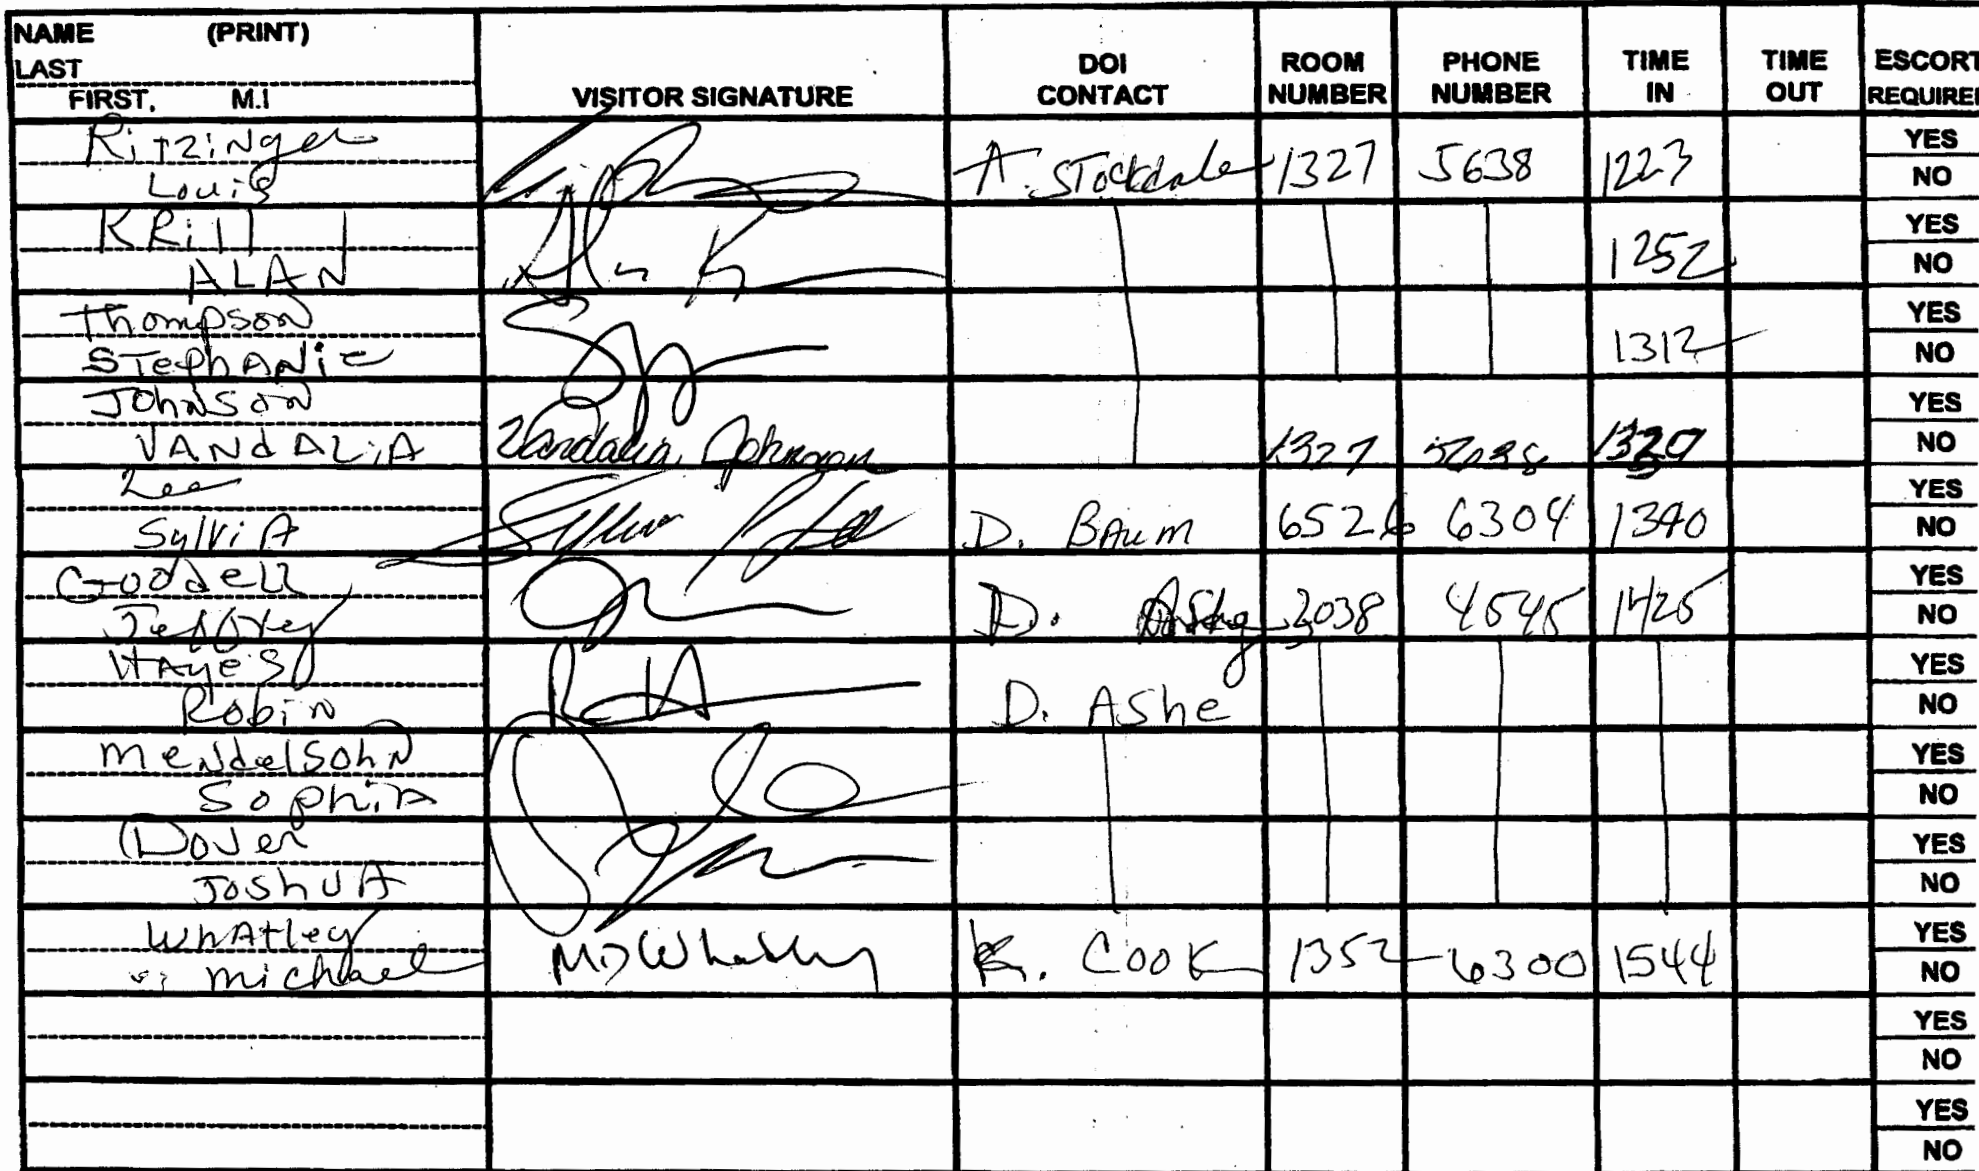 NAME (PRINT)
LAST
FIRST, M.I
VISITOR SIGNATURE
DOI CONTACT
ROOM NUMBER
PHONE NUMBER
TIME IN
TIME OUT
ESCORT REQUIRED
Ritzinger
Louis
A. Stockdale 1327 5638 1223 YES
NO
KRill
ALAN
1252 YES
NO
Thompson
STephANie
1312 YES
NO
Johnson
VANdALiA
Vandalia Johnson 1327 YES
NO
Lee
SylviA
D. BAum 6526 6304 1340 YES
NO
Goodell
Jeffrey
D. 2038 4545 1425 YES
NO
HAyes
Robin
D. AShe YES
NO
mendelSohn
SophiA
YES
NO
Dover
JoshuA
YES
NO
WhAtley
michael
MDWhatley K. Cook 1352 6300 1544 YES
NO
YES
NO
YES
NO